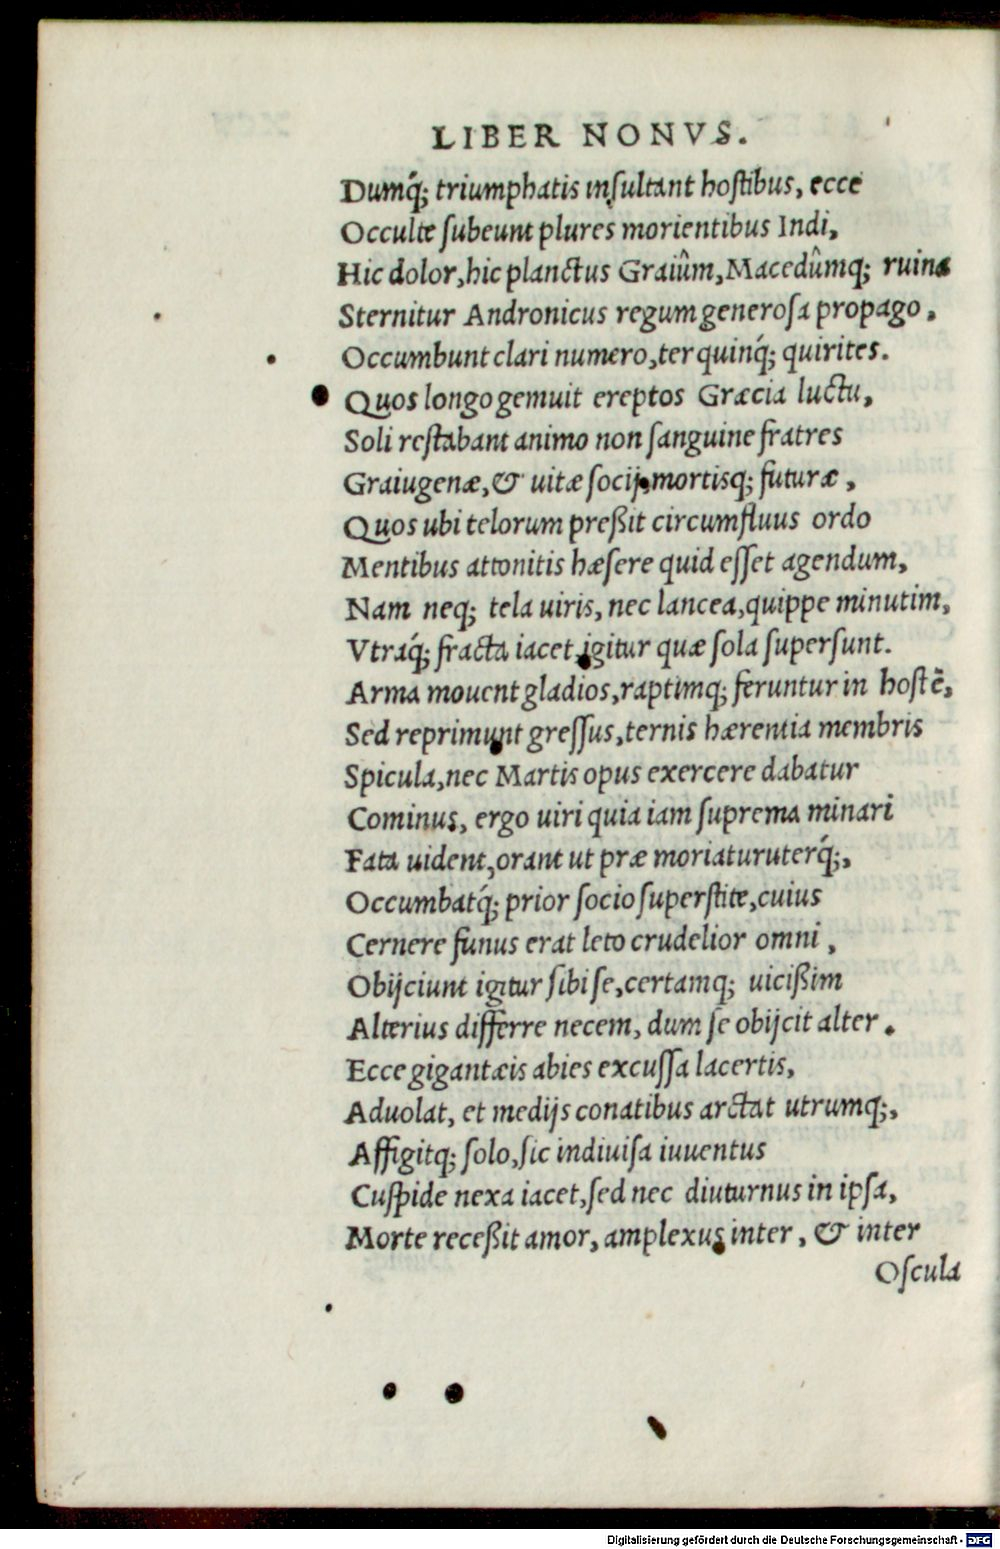 LIBER NONVS.
Dumq́; triumphatis insultant hostibus, ecce
Occulte subeunt plures morientibus Indi,
Hic dolor, hic planctus Graiûm, Macedûmq; ruina
Sternitur Andronicus regum generosa propago,
Occumbunt clari numero, ter quinq́; quirites.
Quos longo gemuit ereptos Græcia luctu,
Soli restabant animo non sanguine fratres
Graiugenæ, & uitæ socij, mortisq; futuræ,
Quos ubi telorum preßit circumfluus ordo
Mentibus attonitis hæsere quid esset agendum,
Nam neq; tela uiris, nec lancea, quippe minutim,
Vtraq́; fracta iacet, igitur quæ sola supersunt.
Arma mouent gladios, raptimq; feruntur in hostē,
Sed reprimunt gressus, ternis hærentia membris
Spicula, nec Martis opus exercere dabatur
Cominus, ergo uiri quia iam suprema minari
Fata uident, orant ut præ moriatur uterq́;,
Occumbatq́; prior socio superstite, cuius
Cernere funus erat leto crudelior omni,
Obijciunt igitur sibi se, certamq; uicißim
Alterius differre necem, dum se obijcit alter.
Ecce gigantæis abies excussa lacertis,
Aduolat, et medijs conatibus arctat utrumq;,
Affigitq; solo, sic indiuisa iuuentus
Cuspide nexa iacet, sed nec diuturnus in ipsa,
Morte receßit amor, amplexus inter, & inter
Oscula
Digitalisierung gefördert durch die Deutsche Forschungsgemeinschaft - DFG